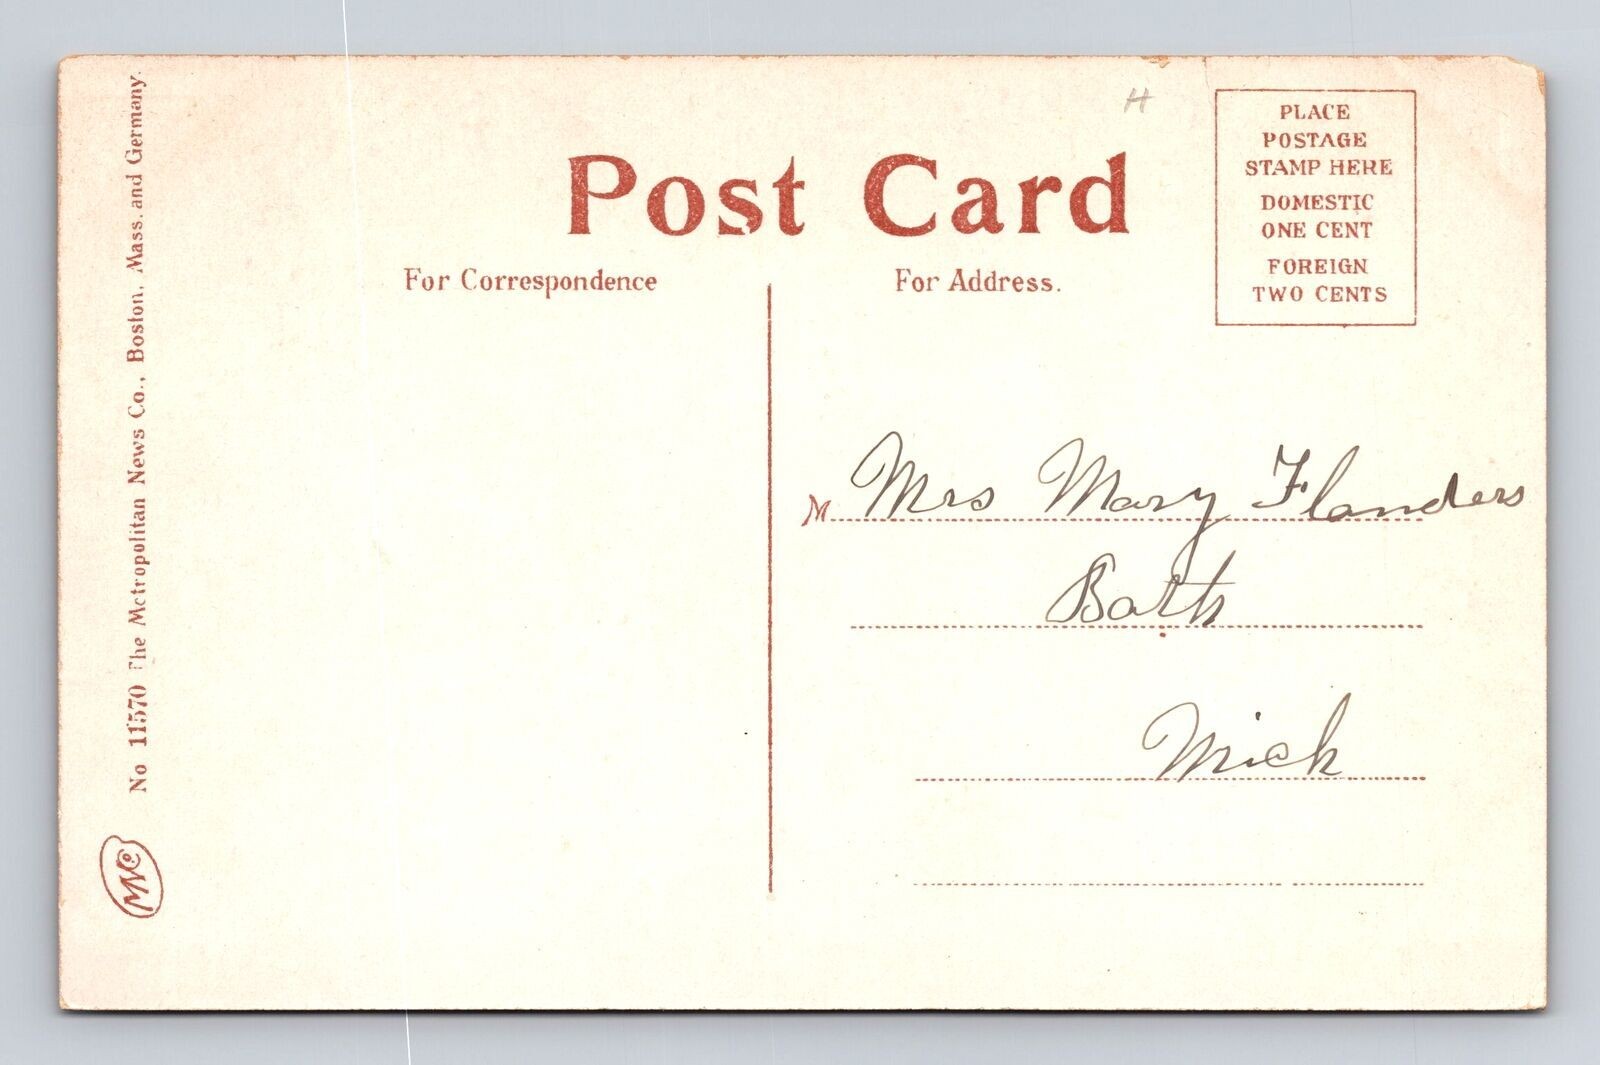 H
Post Card
PLACE
POSTAGE
STAMP HERE
DOMESTIC
ONE CENT
FOREIGN
TWO CENTS
For Correspondence
For Address.
M Mrs Mary Flanders
Bath
Mich
No 11570 The Metropolitan News Co., Boston, Mass. and Germany.
MNCo